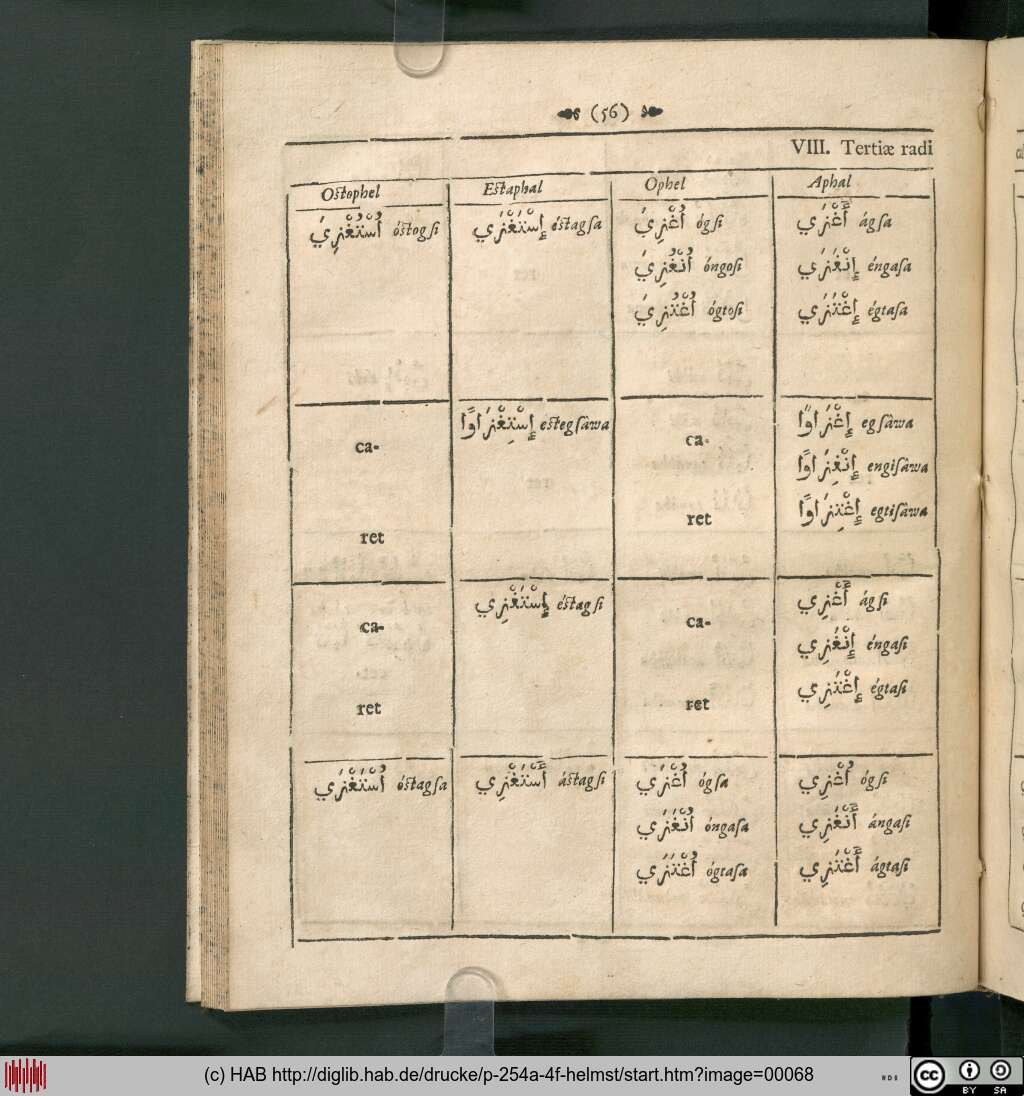 (56)
VIII. Tertiæ radi
Ostophel Estaphal Ophel Aphal
أُسْتُغْزِيَ óstogſi إِسْتَغْزَيَ éstagſa أُغْزِيَ ógſi أَغْزَي ágſa
أُنْغُزِيَ óngoſi إِنْغَزَي éngaſa
أُغْتُزِيَ ógtoſi إِغْتَزَي égtaſa
ca- إِسْتِغْزَاوًا estegſâwa ca- إِغْزَاوًا egſâwa
إِنْغِزَاوًا engiſâwa
ret ret إِغْتِزَاوًا egtiſâwa
ca- إِسْتَغْزِي éstagſi ca- أَغْزِي ágſi
إِنْغَزِي éngaſi
ret ret إِغْتَزِي égtaſi
أُسْتَغْزَي óstagſa أَسْتَغْزِي ástagſi أُغْزَي ógſa أُغْزِي ógſi
أُنْغَزَي óngaſa أَنْغَزِي ángaſi
أُغْتَزَي ógtaſa أَغْتَزِي ágtaſi
(c) HAB http://diglib.hab.de/drucke/p-254a-4f-helmst/start.htm?image=00068
cc BY SA